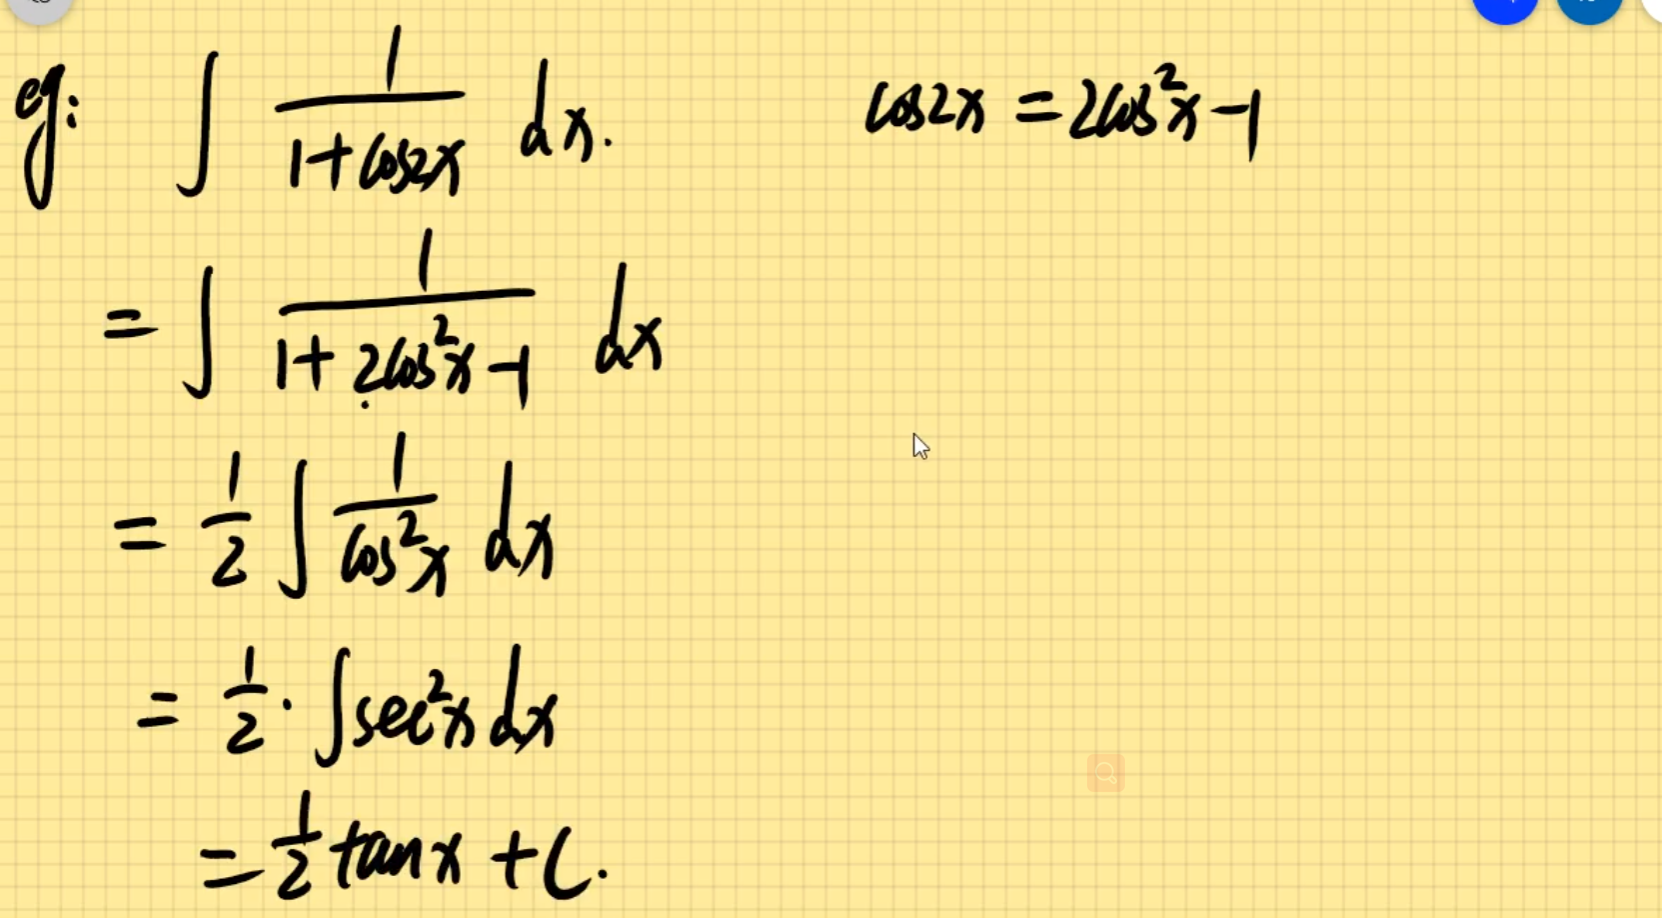 eg: ∫ 1/(1+cos2x) dx. cos2x = 2cos²x-1
= ∫ 1/(1+2cos²x-1) dx
= 1/2 ∫ 1/cos²x dx
= 1/2 · ∫sec²x dx
= 1/2 tanx + C.